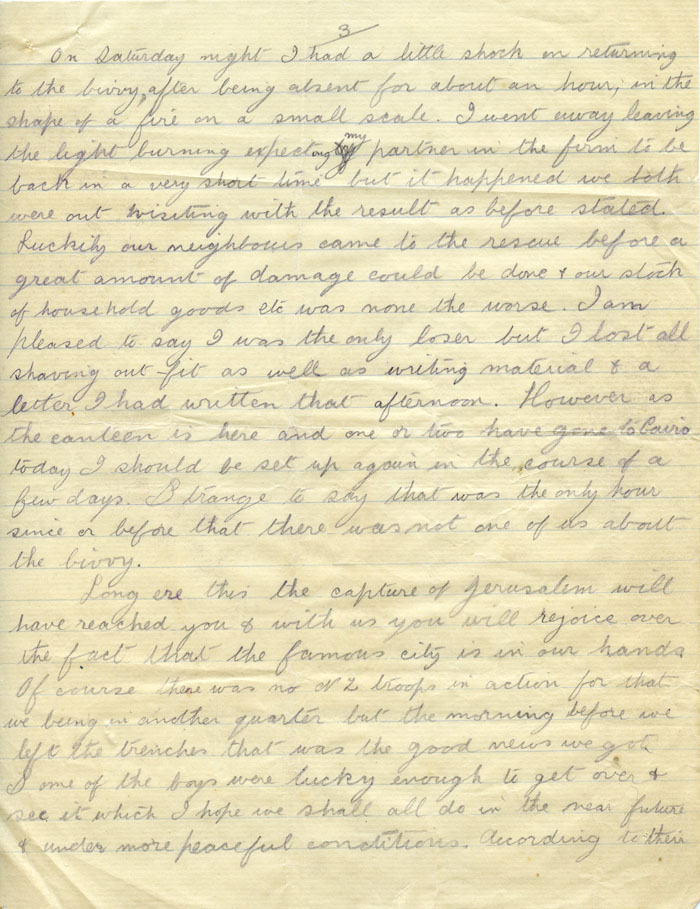 3
On Saturday night I had a little shock on returning
to the bivvy, after being absent for about an hour, in the
shape of a fire on a small scale. I went away leaving
the light burning expecting my partner in the firm to be
back in a very short time but it happened we both
were out visiting with the result as before stated.
Luckily our neighbours came to the rescue before a
great amount of damage could be done & our stock
of household goods etc was none the worse. I am
pleased to say I was the only loser but I lost all
shaving out-fit as well as writing material & a
letter I had written that afternoon. However as
the canteen is here and one or two have gone to Cairo
today I should be set up again in the course of a
few days. Strange to say that was the only hour
since or before that there was not one of us about
the bivvy.
Long ere this the capture of Jerusalem will
have reached you & with us you will rejoice over
the fact that the famous city is in our hands
Of course there was no NZ troops in action for that
we being in another quarter but the morning before we
left the trenches that was the good news we got.
Some of the boys were lucky enough to get over &
see it which I hope we shall all do in the near future
& under more peaceful conctitions. Acording to their